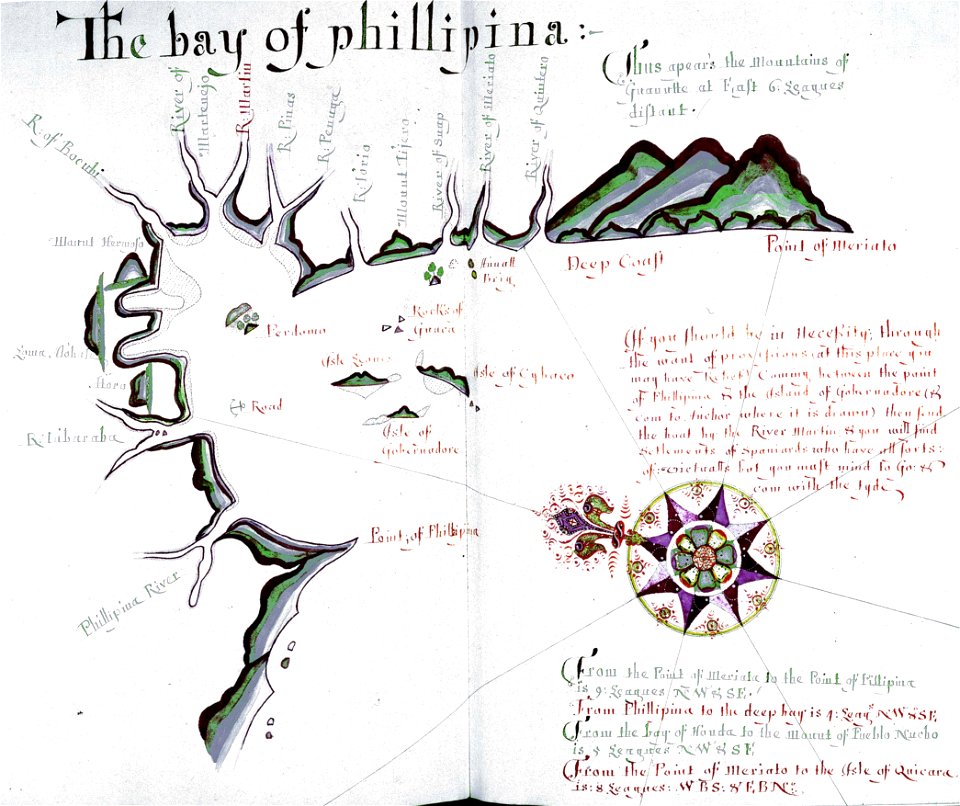 The bay of phillipina:-
Thus apears the Mountains of
Guanutte at East 6: Leagues
distant.
R. of Bocubi
River of
Martenejo
R. Martin
R. Pinas
R. Penuga
R. Iorio
Mount Tijero
River of Suap
River of Meriato
River of Quintero
Mount Hermoso
Deep Coast
Point of Meriato
&
Perdomo
Rocks of
Guaca
Isle
Isle of Cybaco
Road
Isle of
Gobernadore
R. Libaraba
Point of Phillipina
Phillipina River
If you should be in Necesity; through
the want of provisions at this place you
may have Releef Coming between the point
of Phillipina & the Island of Gobernadore (&
com to Anchor where it is drawn) then send
the boat by the River Martin & you will find
Settlements of Spaniards who have all sorts:
of: victualls but you must mind to Go: &
com with the tyde
From the Point of Meriata to the Point of Fillipina
is 9: Leagues NW&SE.
From Phillipina to the deep bay is 4: Leag.s NW&SE
From the bay of Honda to the Mount of Pueblo Nucho
is 4 Leagues NW&SE
From the Point of Meriato to the Isle of Quicara
is: 8 Leagues: WBS: &EBN: